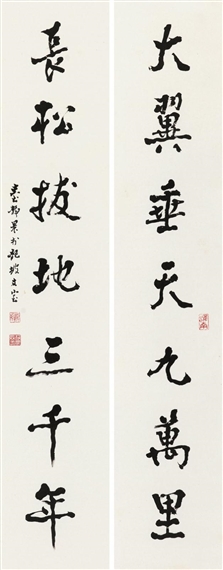 大翼垂天九萬里
長松拔地三千年